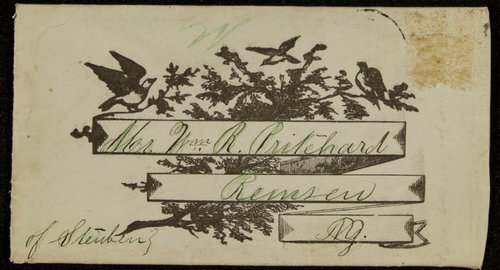 Mrs. Wm. R. Pritchard
Remsen
NY.
of Steuben